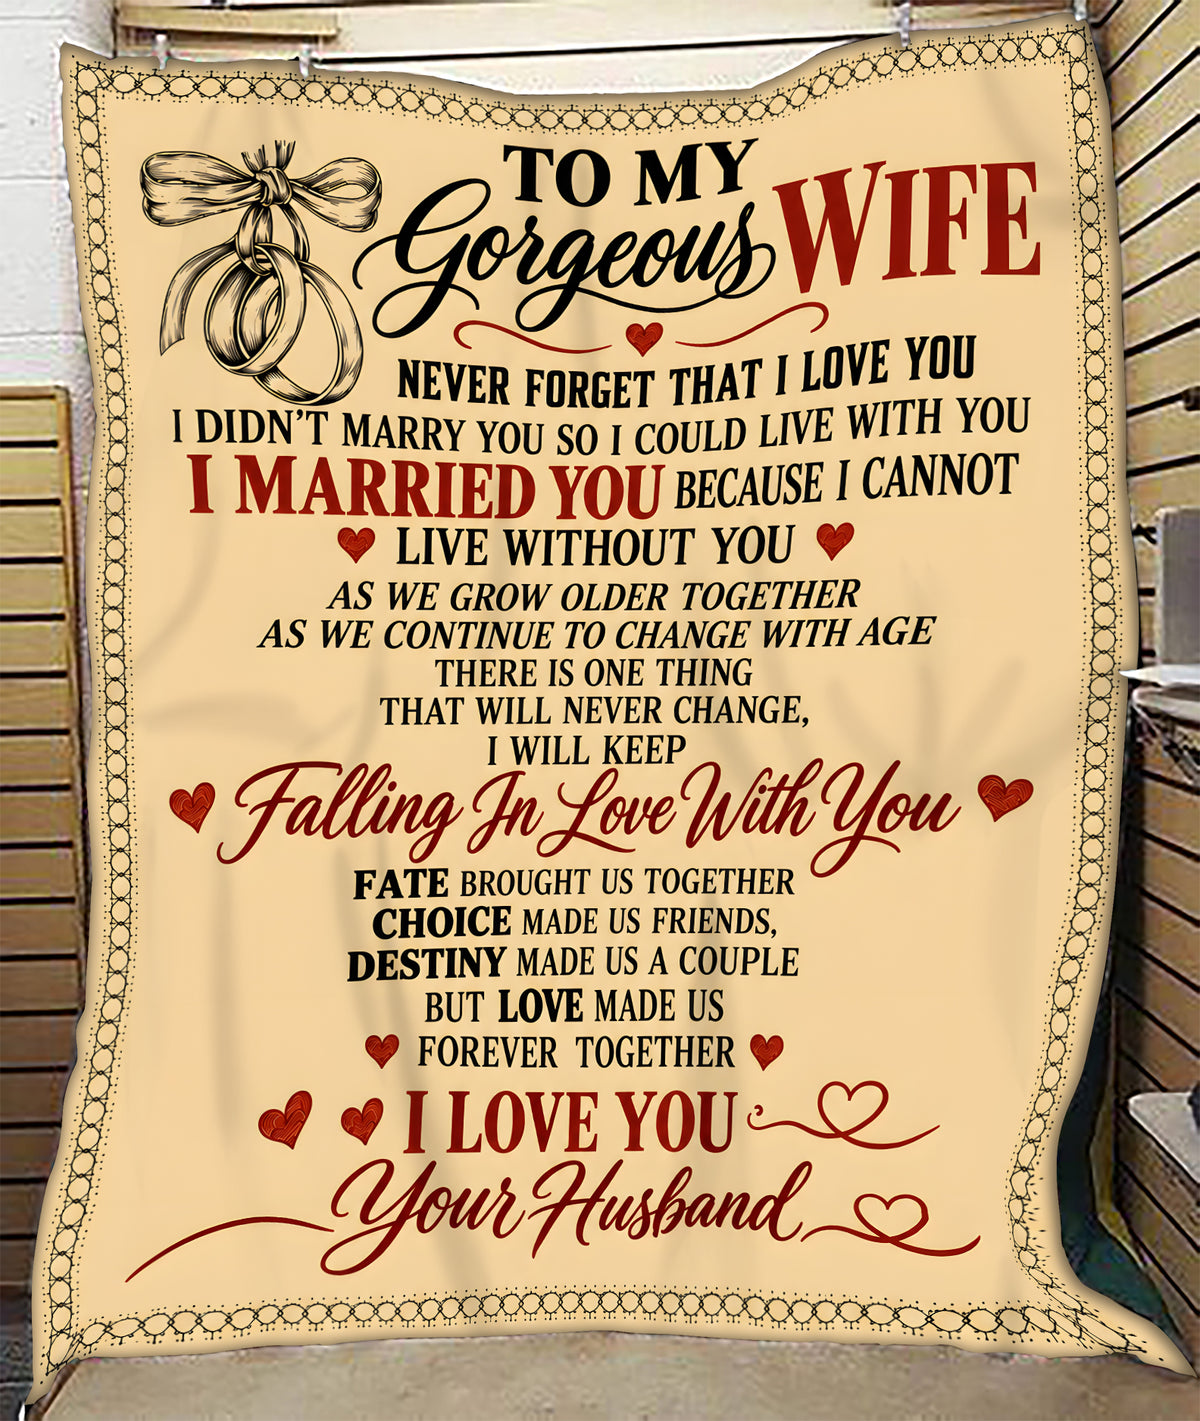 TO MY
Gorgeous WIFE
NEVER FORGET THAT I LOVE YOU
I DIDN'T MARRY YOU SO I COULD LIVE WITH YOU
I MARRIED YOU BECAUSE I CANNOT
LIVE WITHOUT YOU
AS WE GROW OLDER TOGETHER
AS WE CONTINUE TO CHANGE WITH AGE
THERE IS ONE THING
THAT WILL NEVER CHANGE,
I WILL KEEP
Falling In Love With You
FATE BROUGHT US TOGETHER
CHOICE MADE US FRIENDS,
DESTINY MADE US A COUPLE
BUT LOVE MADE US
FOREVER TOGETHER
I LOVE YOU
Your Husband